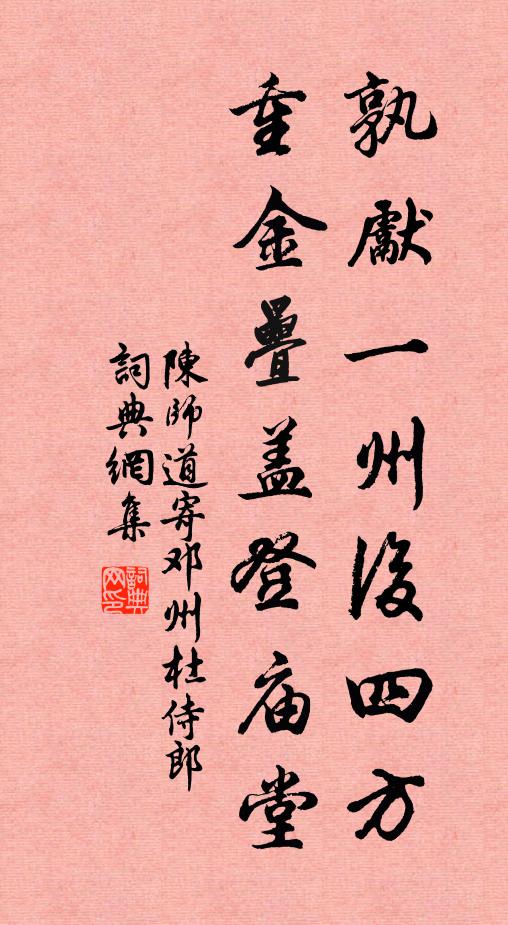 孰獻一州後四方
重金疊盖登庙堂
陳師道寄邓州杜侍郎
詞典網集
詞典网印